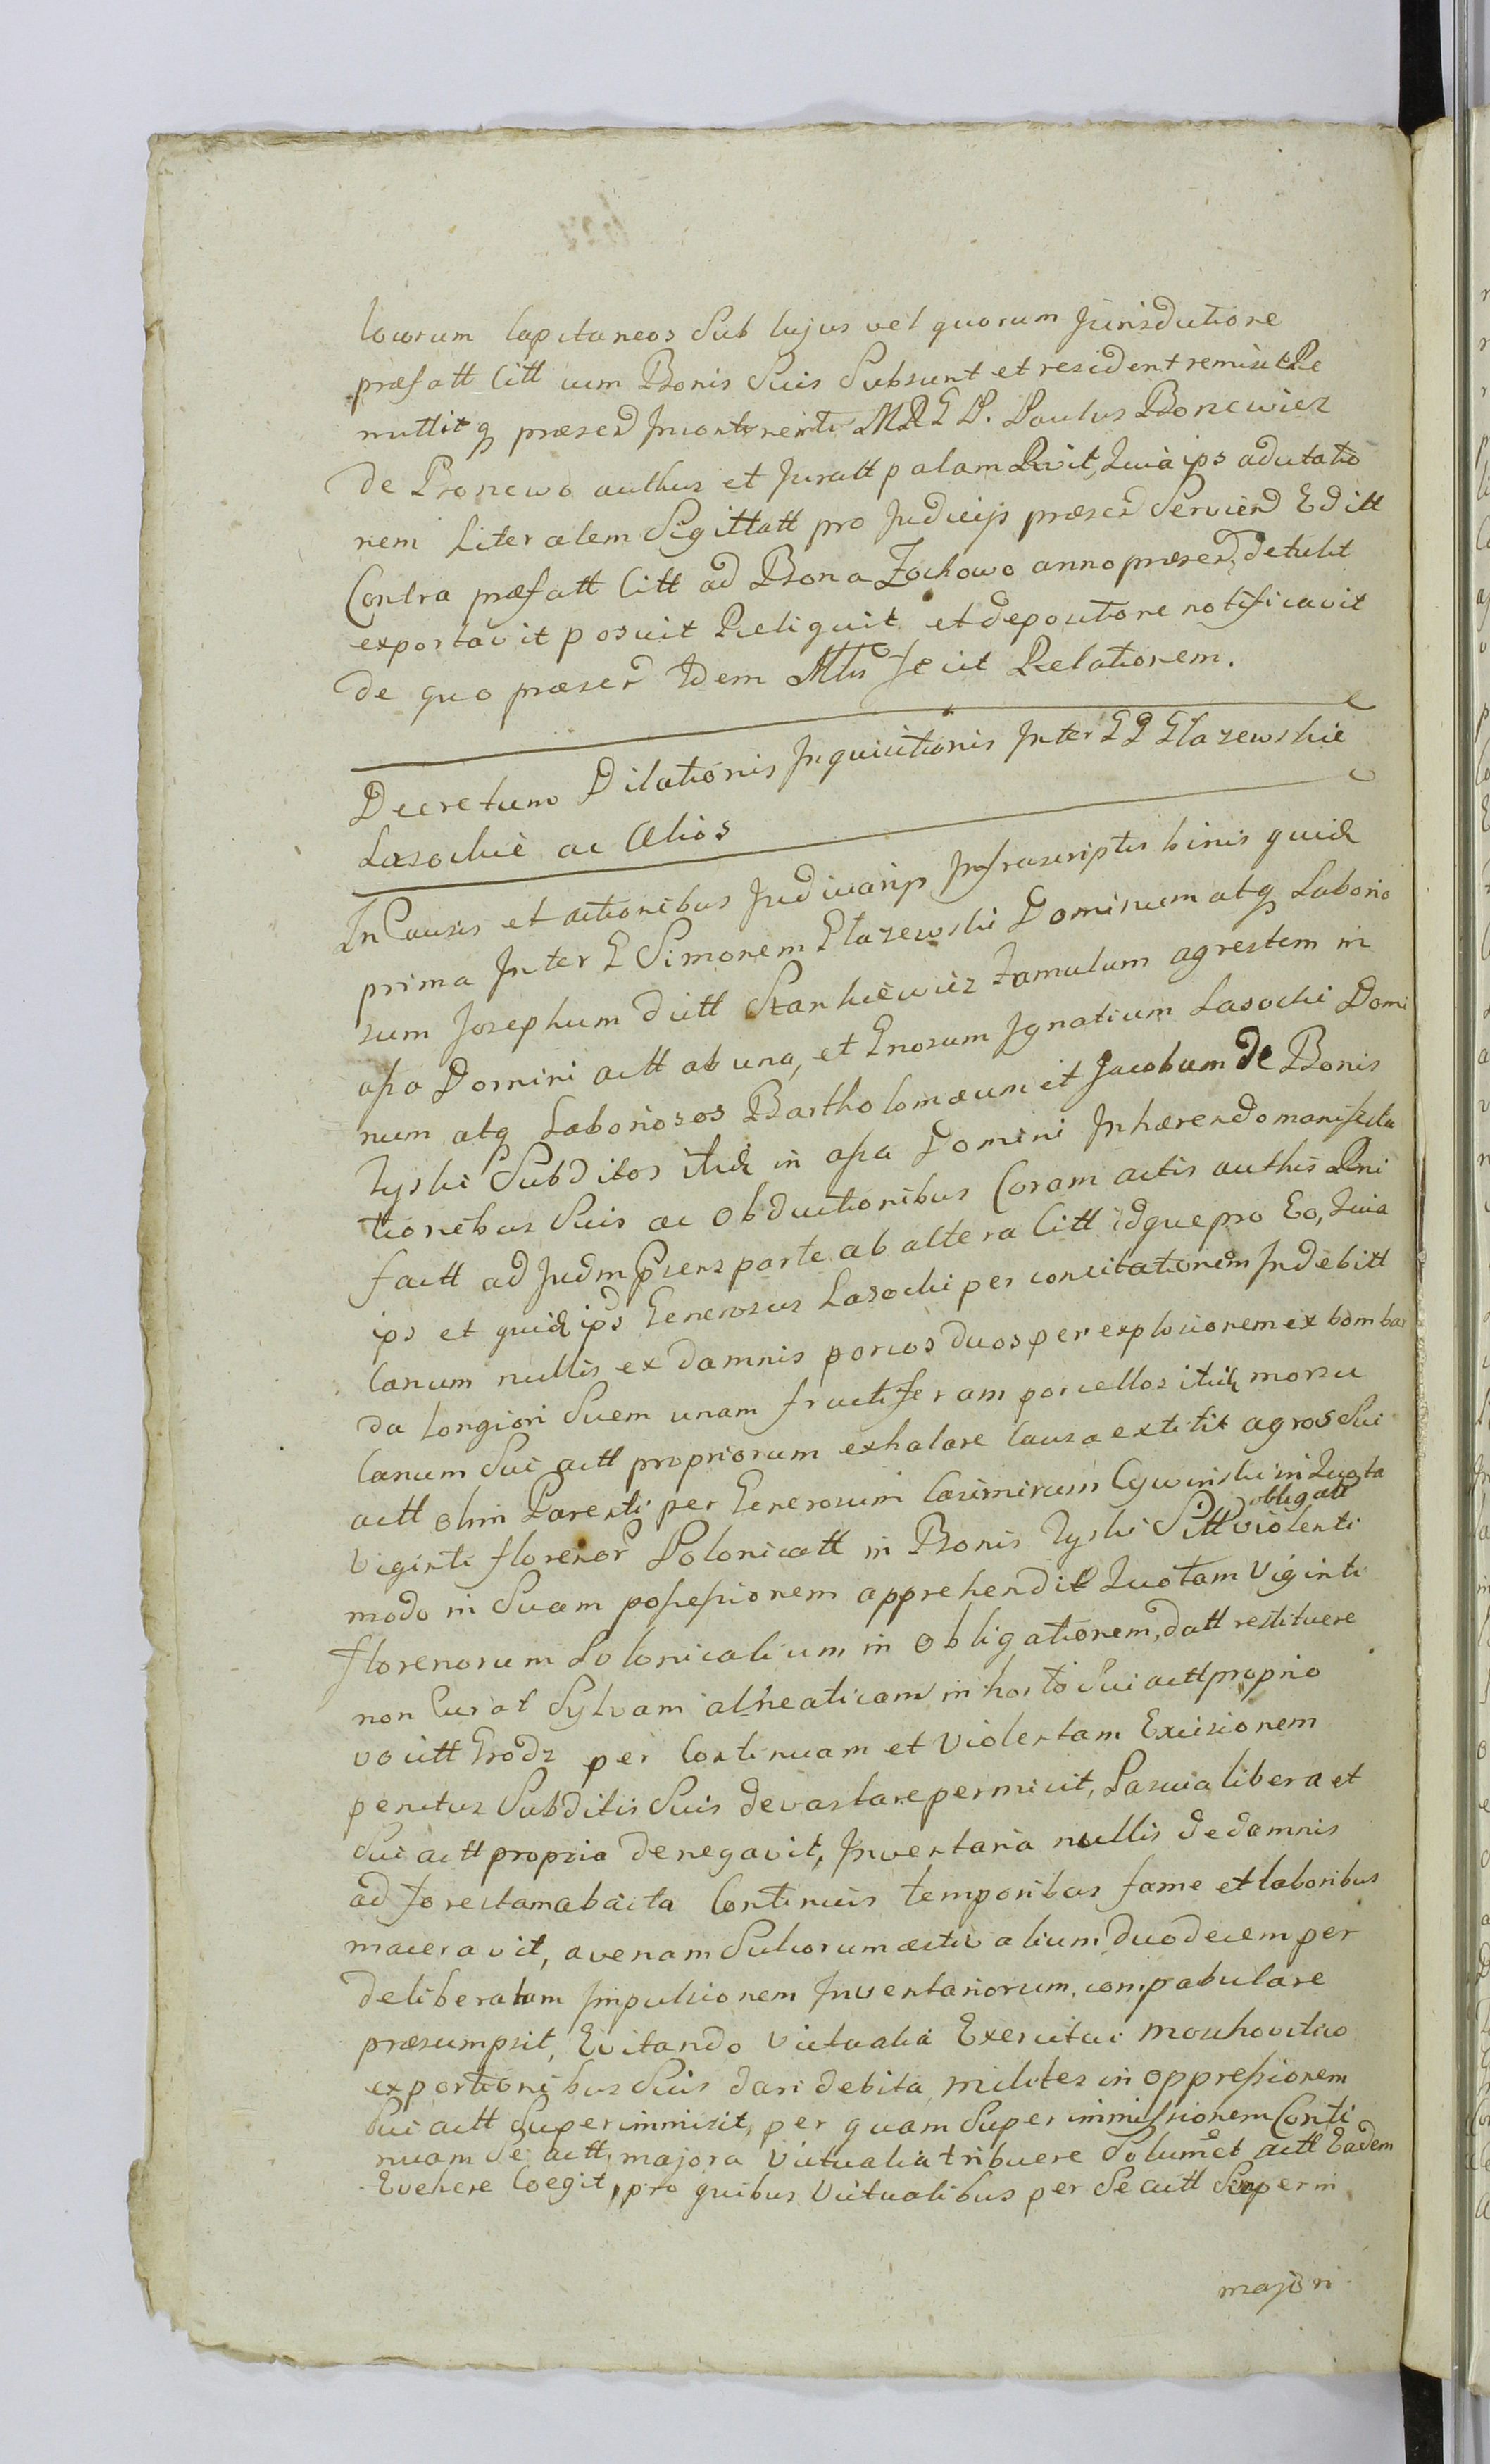 locorum Capitaneos Sub cujus vel quorum Jurisdictione
præfatt Citt cum Bonis Suis Subsunt et resident remisit Re
mittitq præsend Incontinenti MRGD. Paulus Boncwicz
de Boncwo authus et Juratt palam Rcvit, Quia ips adcitatio
nem Literalem Sigittatt pro Judicijs præsend Serviend Editt
Contra præfatt Citt ad Bona Zochowo anno præsend detulit
exportavit posuit Reliquit et depositione notificavit
de quo præsend Idem Mlis fecit Relationem.
Decretum Dilationis Inquisitionis Inter GG Głazewskie
Lasockie ac Alios
In Causis et actionibus Judicarijs Infrascriptis binis quid
prima Inter G Simonem Głazewski Dominum atq Laborio
sum Josephum dictt Stankiewicz Famulum agrestem in
assa Domini actt ab una, et Gnosum Ignatium Lasocki Domi
num atq Laboriosos Bartholomæum et Jacobum de Bonis
Zyski Subditos itid in assa Domini Inhærendo manifesta
tionibus Suis ac Obductionibus Coram actis authis Pni
factt ad Judm Psens parte ab altera Citt idque pro Eo, Quia
ips et quid ips Generosus Lasocki per concitationem Indebitt
Canum nullis ex damnis porcos duos per explosionem ex bombar
da longiori Suem unam fructiferam porcellos itid morsu
Canum Sui actt propriorum exhalare Causa extitit agros Sui
actt olim Parenti per Generosum Casimirum Cywinski in Quota
Viginti florenor Polonicatt in Bonis Zyski Sitt obligatt violenti
modo in Suam possessionem apprehendit Quotam Viginti
florenorum Polonicalium in Obligationem datt restituere
non Curat Sylvam alneaticam in horto Sui actt proprio
vocitt Grodz per Continuam et Violentam Excisionem
penitus Subditis Suis devastare permisit, Pascua libera et
Sui actt propria denegavit, Inventaria nullis de damnis
ad forectam abacta Continuis temporibus fame et laboribus
maceravit, avenam Sulcorum æstivalium duodecem per
deliberatam Impulsionem Inventariorum compabulare
præsumpsit, Evitando Victualia Exercitui moschovitico
ex portionibus Suis dari debita milites in oppressionem
Sui actt Superimmisit, per quam Superimmissionem Conti
nuam Se actt, majora Victualia tribuere Solummet actt Eadem
Evehere Coegit, pro quibus Victualibus per Se actt Superin
majori